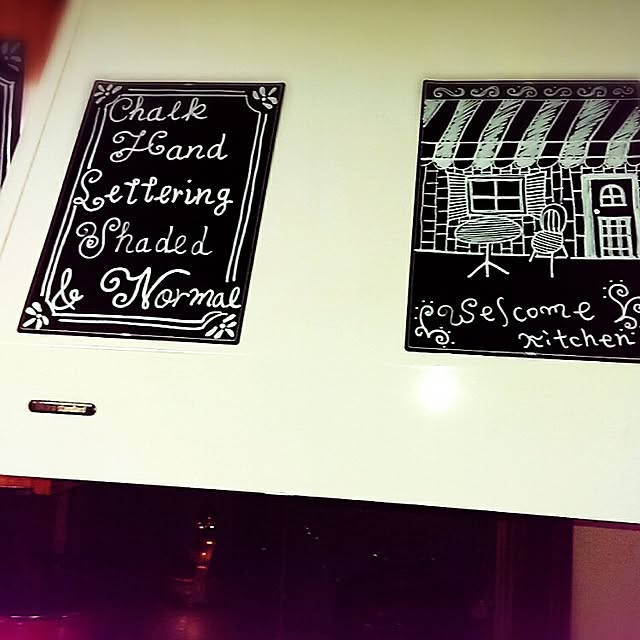 Chalk
Hand
Lettering
Shaded
& Normal
Welcome
Kitchen